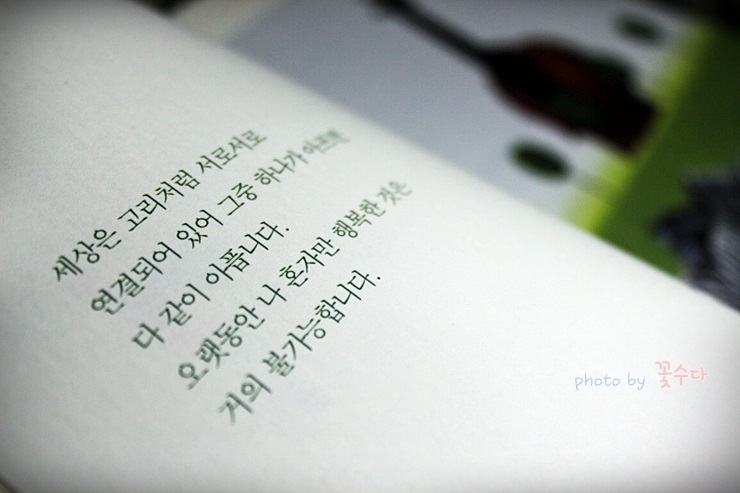 세상은 고리처럼 서로서로
연결되어 있어 그중 하나가 아프면
다 같이 아픕니다.
오랫동안 나 혼자만 행복한 것은
거의 불가능합니다.
photo by 꽃수다